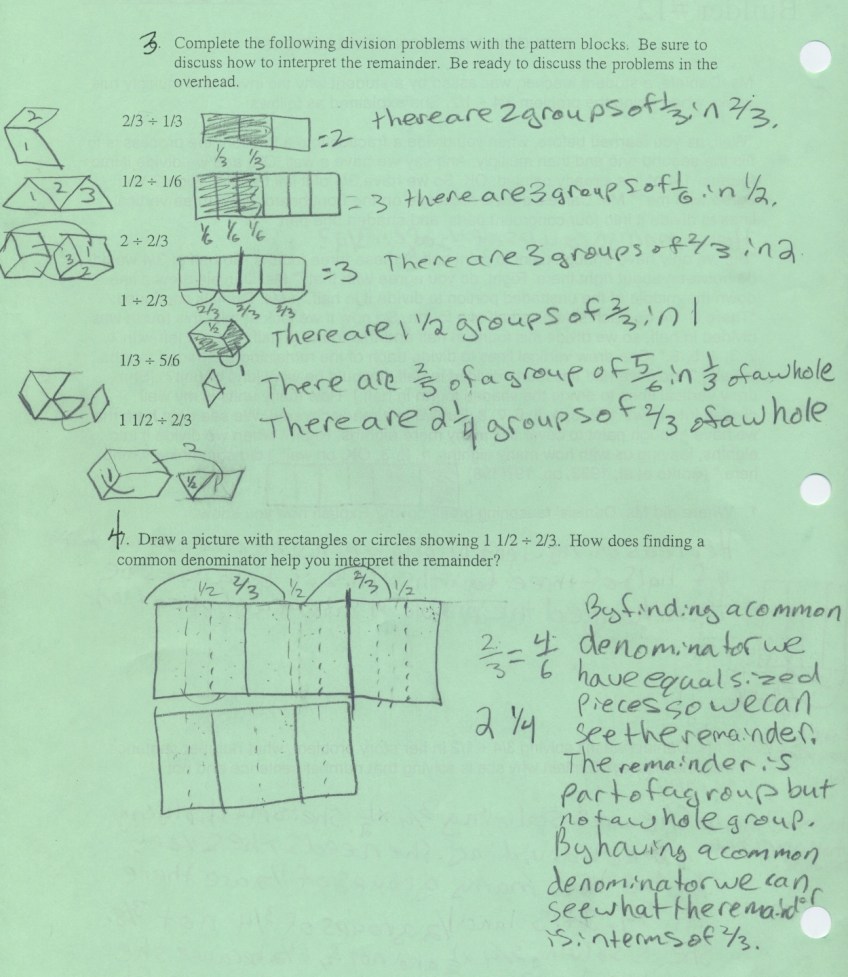 3. Complete the following division problems with the pattern blocks. Be sure to
discuss how to interpret the remainder. Be ready to discuss the problems in the
overhead.
2
1
2/3 ÷ 1/3
=2
there are 2 groups of 1/3 in 2/3.
1/3 1/3
1 2 3
1/2 ÷ 1/6
= 3 there are 3 groups of 1/6 in 1/2.
1/6 1/6 1/6
3 1
2
2 ÷ 2/3
=3 There are 3 groups of 2/3 in 2
2/3 2/3 2/3
1 ÷ 2/3
1/2
1
There are 1 1/2 groups of 2/3 in 1
1/3 ÷ 5/6
There are 2/5 of a group of 5/6 in 1/3 of a whole
1 1/2 ÷ 2/3
There are 2 1/4 groups of 2/3 of a whole
2
1
1/2
4. Draw a picture with rectangles or circles showing 1 1/2 ÷ 2/3. How does finding a
common denominator help you interpret the remainder?
1/2 2/3 1/2 2/3 1/2
2/3 = 4/6
2 1/4
By finding a common
denominator we
have equal sized
pieces so we can
see the remainder.
The remainder is
part of a group but
not a whole group.
By having a common
denominator we can
see what the remainder
is in terms of 2/3.